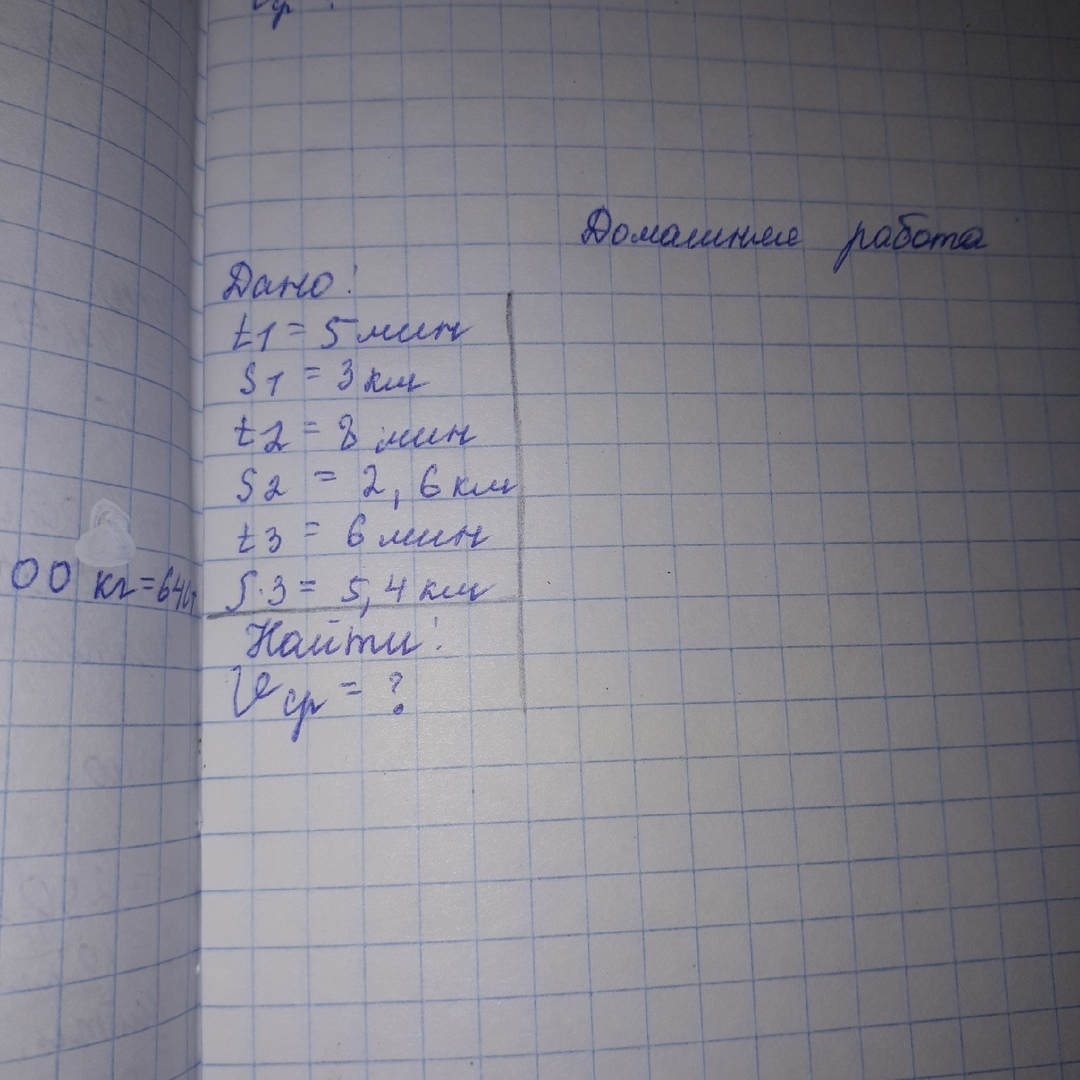 Vср
Домашняя работа
Дано:
t1 = 5 мин
S1 = 3 км
t2 = 8 мин
S2 = 2,6 км
t3 = 6 мин
00 кг = 64
S.3 = 5,4 км
Найти:
Vср = ?